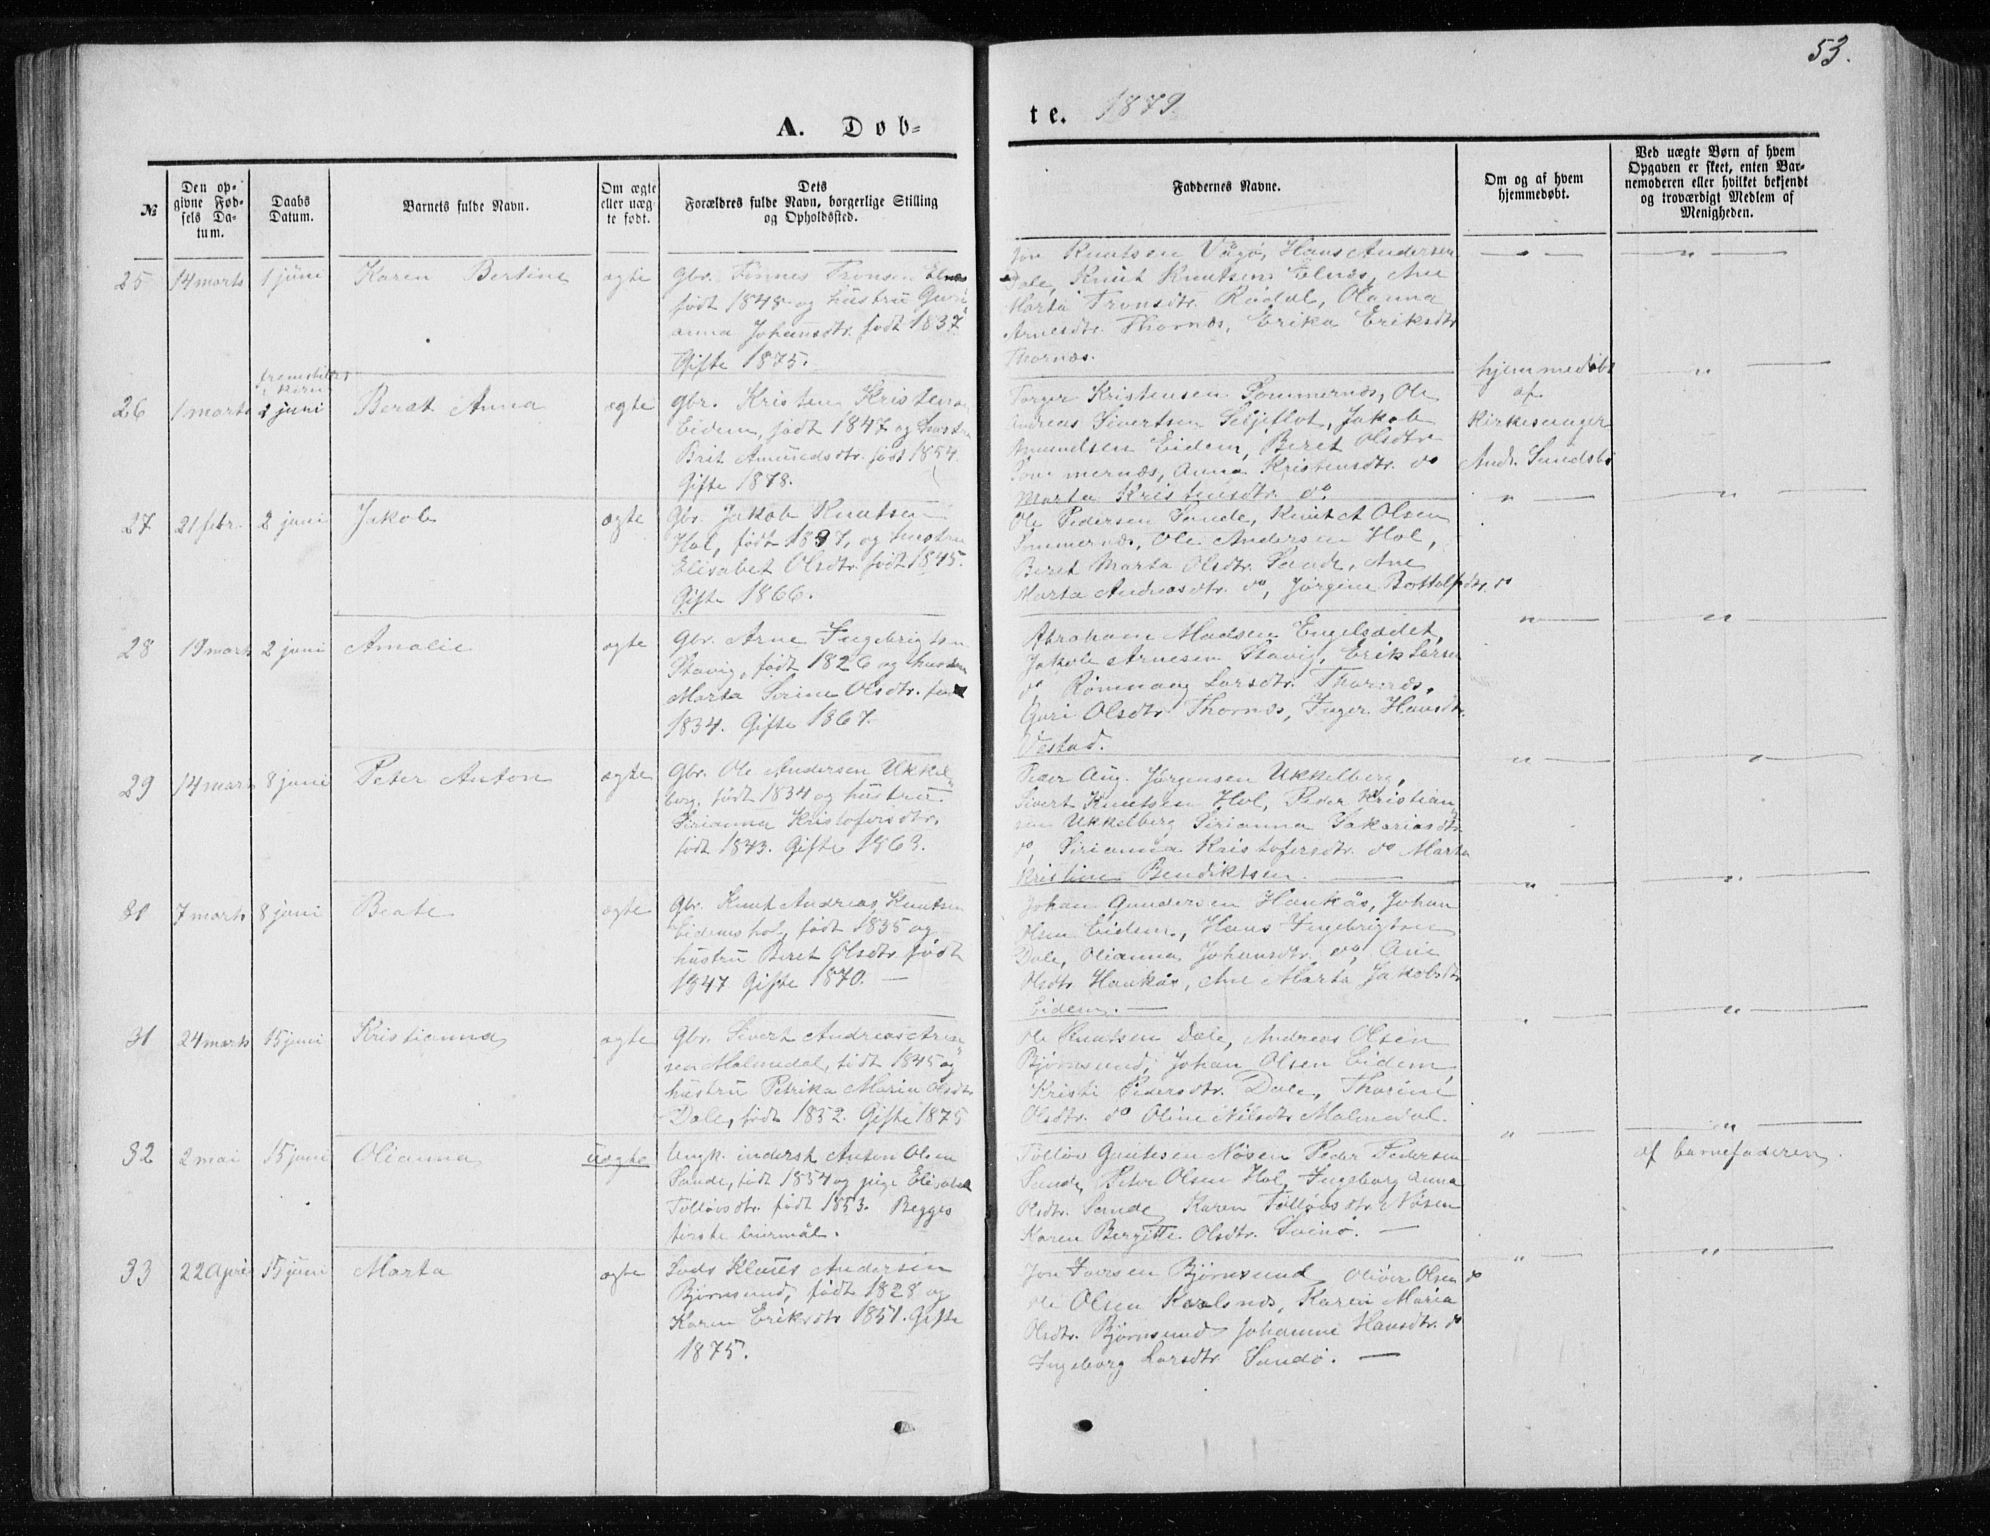 53.
A. Døb-
te. 1879
№
Den op-
givne Fød-
sels Da-
tum.
Daabs
Datum.
Barnets fulde Navn.
Om ægte
eller uæg-
te født.
Dets
Forældres fulde Navn, borgerlige Stilling
og Opholdssted.
Faddernes Navne.
Om og af hvem
hjemmedøbt.
Ved uægte Børn af hvem
Opgaven er skeet, enten Bar-
nemoderen eller hvilket bekjendt
og troværdigt Medlem af
Menigheden.
25 14 marts 1 juni Karen Bertine ægte
Gbr. Tønnes Tronsen Elnes
født 1848 og hustru Guri-
anna Johansdtr. født 1837
Gifte 1875.
Jon Knutsen Vågø, Hans Andersen
Dale, Knut Knutsen Elnæs, Ane
Marta Tronsdtr. Rødal, Olanna
Arnesdtr. Thornæs, Erika Eriksdtr
Thornæs.
26 1 marts 2 juni Beret Anna ægte
Gbr. Kristen Kristensen
Eidem, født 1847 og hustru
Brit Amundsdtr. født 1854.
Gifte 1878.
Torger Kristensen Sommernæs, Ole
Andreas Sivertsen Seljeflot, Jakob
Amundsen Eidem, Beret Olsdtr.
Sommernæs, Anna Kristensdtr. do
Marta Kristensdtr. do.
hjemmedøbt
af
Kirkesanger
Andr. Sundsbø
27 21 febr. 2 juni Jakob ægte
Gbr. Jakob Knutsen
Hol, født 1837, og hustru
Elisabet Olsdtr. født 1845.
Gifte 1866.
Ole Pedersen Sande, Knut A Olsen
Sommernæs, Ole Andersen Hol,
Beret Marta Olsdtr. Sande, Ane
Marta Andreasdtr. do, Jørgine Bottolfsdtr. do
28 19 marts 2 juni Amalie ægte
Gbr. Arne Ingebrigtsen
Stavig, født 1826 og hustru
Marta Serine Olsdtr. født
1834. Gifte 1867.
Abraham Madsen Engelsædet,
Jakob Arnesen Stavig, Erik Larsen
do Rønnaug Larsdtr. Thornæs,
Guri Olsdtr. Thornæs, Inger Hansdtr.
Vestad.
29 14 marts 8 juni Peter Anton ægte
Gbr. Ole Andersen Ukkel-
berg, født 1834 og hustru
Sirianna Kristofersdtr.
født 1843. Gifte 1863.
Peder Aug. Jørgensen Ukkelberg,
Sivert Knutsen Hol, Peder Kristian-
sen Ukkelberg Sirianna Sakariasdtr
do, Sirianna Kristofersdtr. do Marta
Kristine Bendiktsen.
7 marts 8 juni Beate ægte
Gbr. Knut Andreas Knutsen
Eidemshol, født 1835 og
hustru Beret Olsdtr. født
1847 Gifte 1870.
Johan Gundersen Haukås, Johan
Olsen Eidem, Hans Ingebrigtsen
Dale, Olianna Johansdtr. do, Ane
Olsdtr. Haukås, Ane Marta Jakobsdtr
Eidem.
31 24 marts 15 juni Kristianna ægte
Gbr. Sivert Andreas Arne-
sen Malmedal, født 1845 og
hustru Petrika Maria Olsdtr
Dale, født 1852. Gifte 1875
Ole Knutsen Dale, Andreas Olsen
Bjørnsund, Johan Olsen Eidem
Kristi Pedersdtr. Dale, Thorine
Olsdtr. do Oline Nilsdtr Malmedal.
32 2 mai 15 juni Olianna uægte
Ungk. inderst Anton Olsen
Sande, født 1854 og pige Elisabet
Tolløvsdtr. født 1853. Begges
første leiermål.
Tolløv Gautesen Nøsen Peder Pedersen
Sande, Peter Olsen Hol, Ingeborg Anna
Olsdtr. Sande, Karen Tolløvsdtr. Nøsen
Karen Bergitte Olsdtr. Svinø.
af barnefaderen
33 22 April 15 juni Marta ægte
Lods Klaus Andersen
Bjørnsund, født 1828 og
Karen Eriksdtr 1851. Gifte
1875.
Jon Iversen Bjørnsund, Oliver Olsen do
Ole Olsen Karlsnæs, Karen Maria
Olsdtr. Bjørnsund, Johanne Hansdtr. do
Ingeborg Larsdtr Sandø.